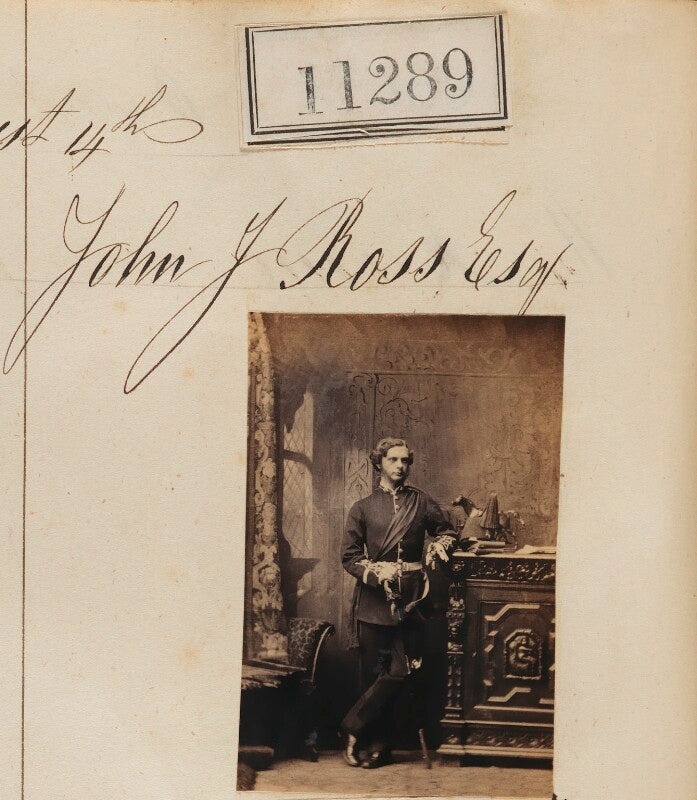 11289
4th
John J Ross Esq